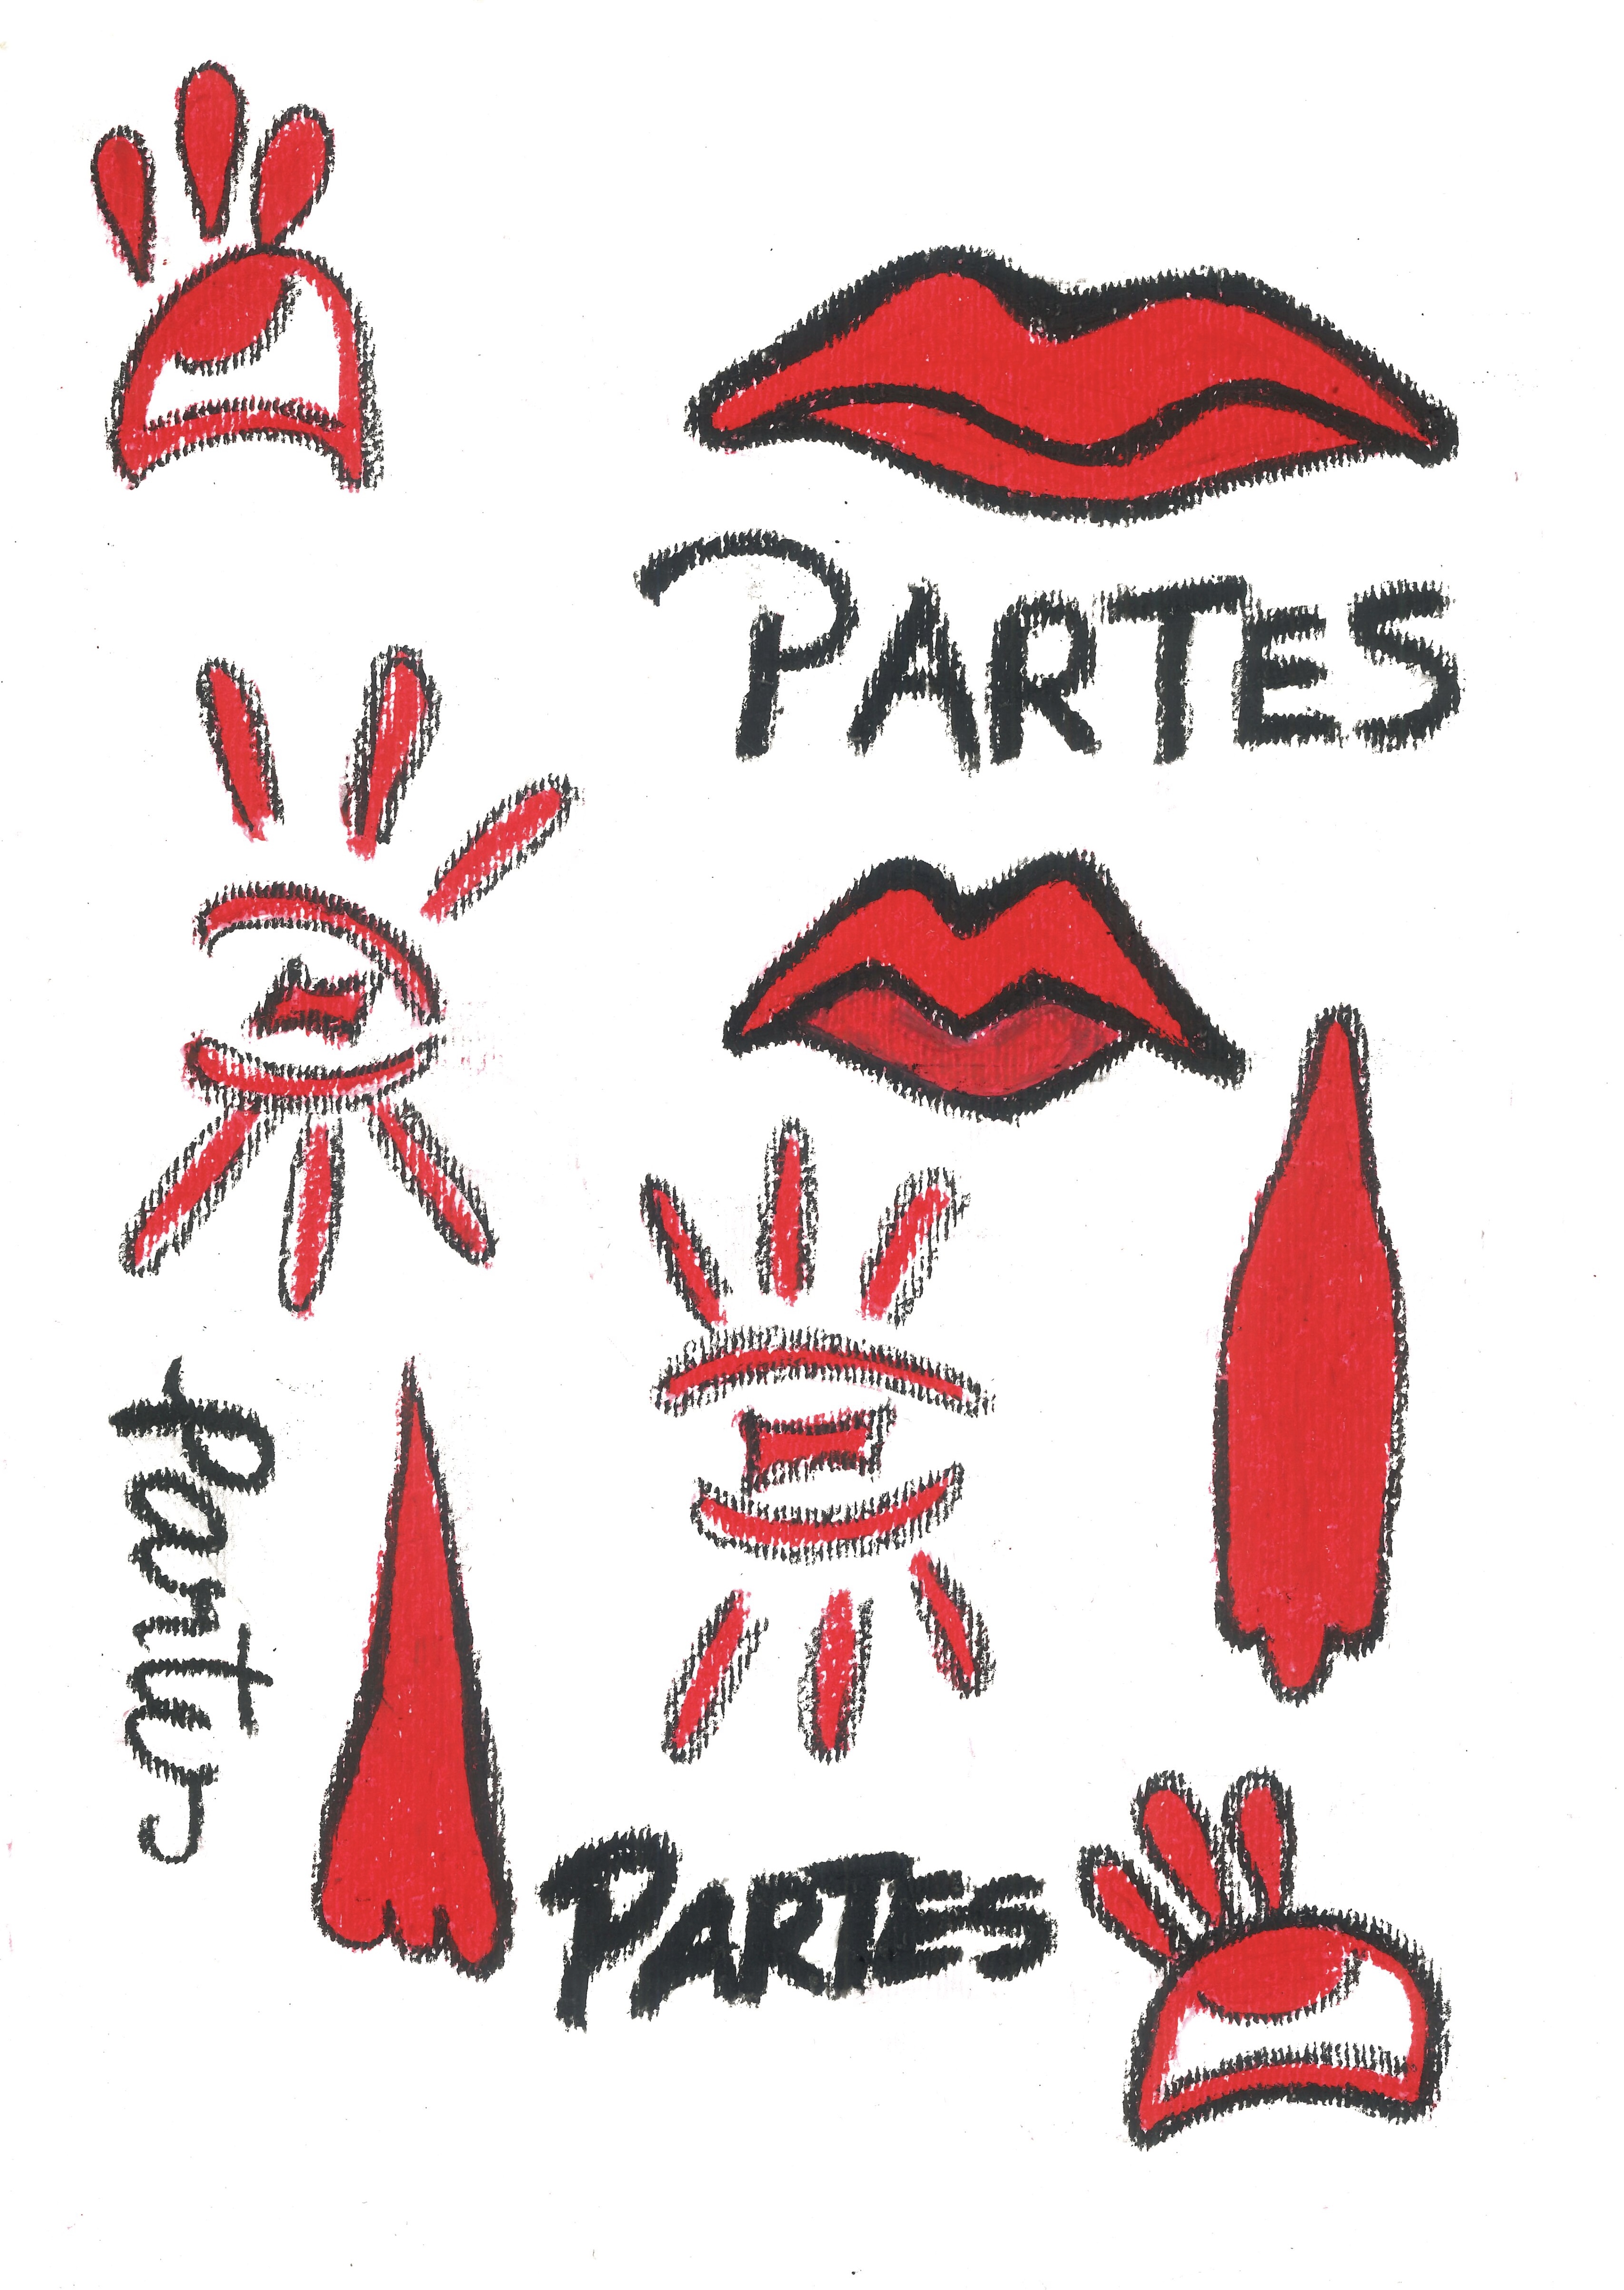 PARTES
Partes
PARTES